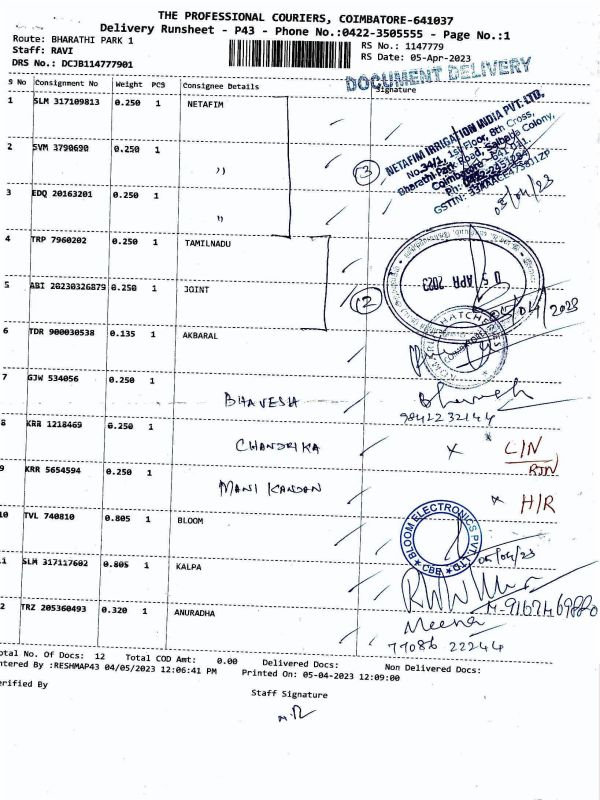 THE PROFESSIONAL COURIERS, COIMBATORE-641037
Delivery Runsheet - P43 - Phone No.:0422-3505555 - Page No.:1
Route: BHARATHI PARK 1
RS No.: 1147779
Staff: RAVI
RS Date: 05-Apr-2023
DRS No.: DCJB114777901
DOCUMENT DELIVERY
S No Consignment No Weight PCS Consignee Details Signature
1 SLM 317109813 0.250 1 NETAFIM
NETAFIM IRRIGATION INDIA PVT. LTD.
No.34/1, 1st Floor, 8th Cross,
Bharathi Park Road, Saibaba Colony,
2 SVM 3790690 0.250 1 ''
3
3 EDQ 20163201 0.250 1 ''
4 TRP 7960202 0.250 1 TAMILNADU
5 APR 2023
5 ABI 20230326879 0.250 1 JOINT
2
6 TDR 900030538 0.135 1 AKBARAL
7 GJW 534056 0.250 1 BHAVESH
9842232144
8 KRR 1218469 0.250 1 CHANDRIKA x L/N
RJN
9 KRR 5654594 0.250 1 MANI KANDAN x H/R
10 TVL 740810 0.805 1 BLOOM
BLOOM ELECTRONICS PVT. LTD.
CBE
05/04/23
11 SLM 317117602 0.805 1 KALPA
12 TRZ 205360493 0.320 1 ANURADHA
Meena
77086 22244
Total No. Of Docs: 12 Total COD Amt: 0.00 Delivered Docs: Non Delivered Docs:
ntered By :RESHMAP43 04/05/2023 12:06:41 PM Printed On: 05-04-2023 12:09:00
erified By
Staff Signature